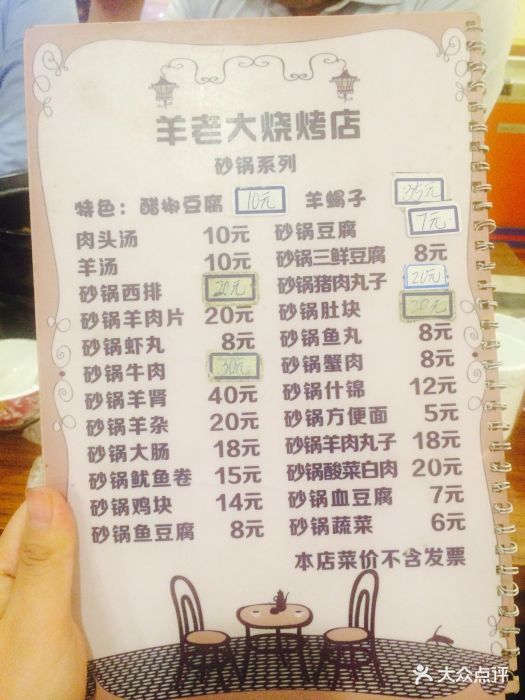 羊老大烧烤店
砂锅系列
特色：醋椒豆腐 10元 羊蝎子 35元
肉头汤 10元 砂锅豆腐 7元
羊汤 10元 砂锅三鲜豆腐 8元
砂锅西排 20元 砂锅猪肉丸子 20元
砂锅羊肉片 20元 砂锅肚块 20元
砂锅虾丸 8元 砂锅鱼丸 8元
砂锅牛肉 30元 砂锅蟹肉 8元
砂锅羊肾 40元 砂锅什锦 12元
砂锅羊杂 20元 砂锅方便面 5元
砂锅大肠 18元 砂锅羊肉丸子 18元
砂锅鱿鱼卷 15元 砂锅酸菜白肉 20元
砂锅鸡块 14元 砂锅血豆腐 7元
砂锅鱼豆腐 8元 砂锅蔬菜 6元
本店菜价不含发票
大众点评